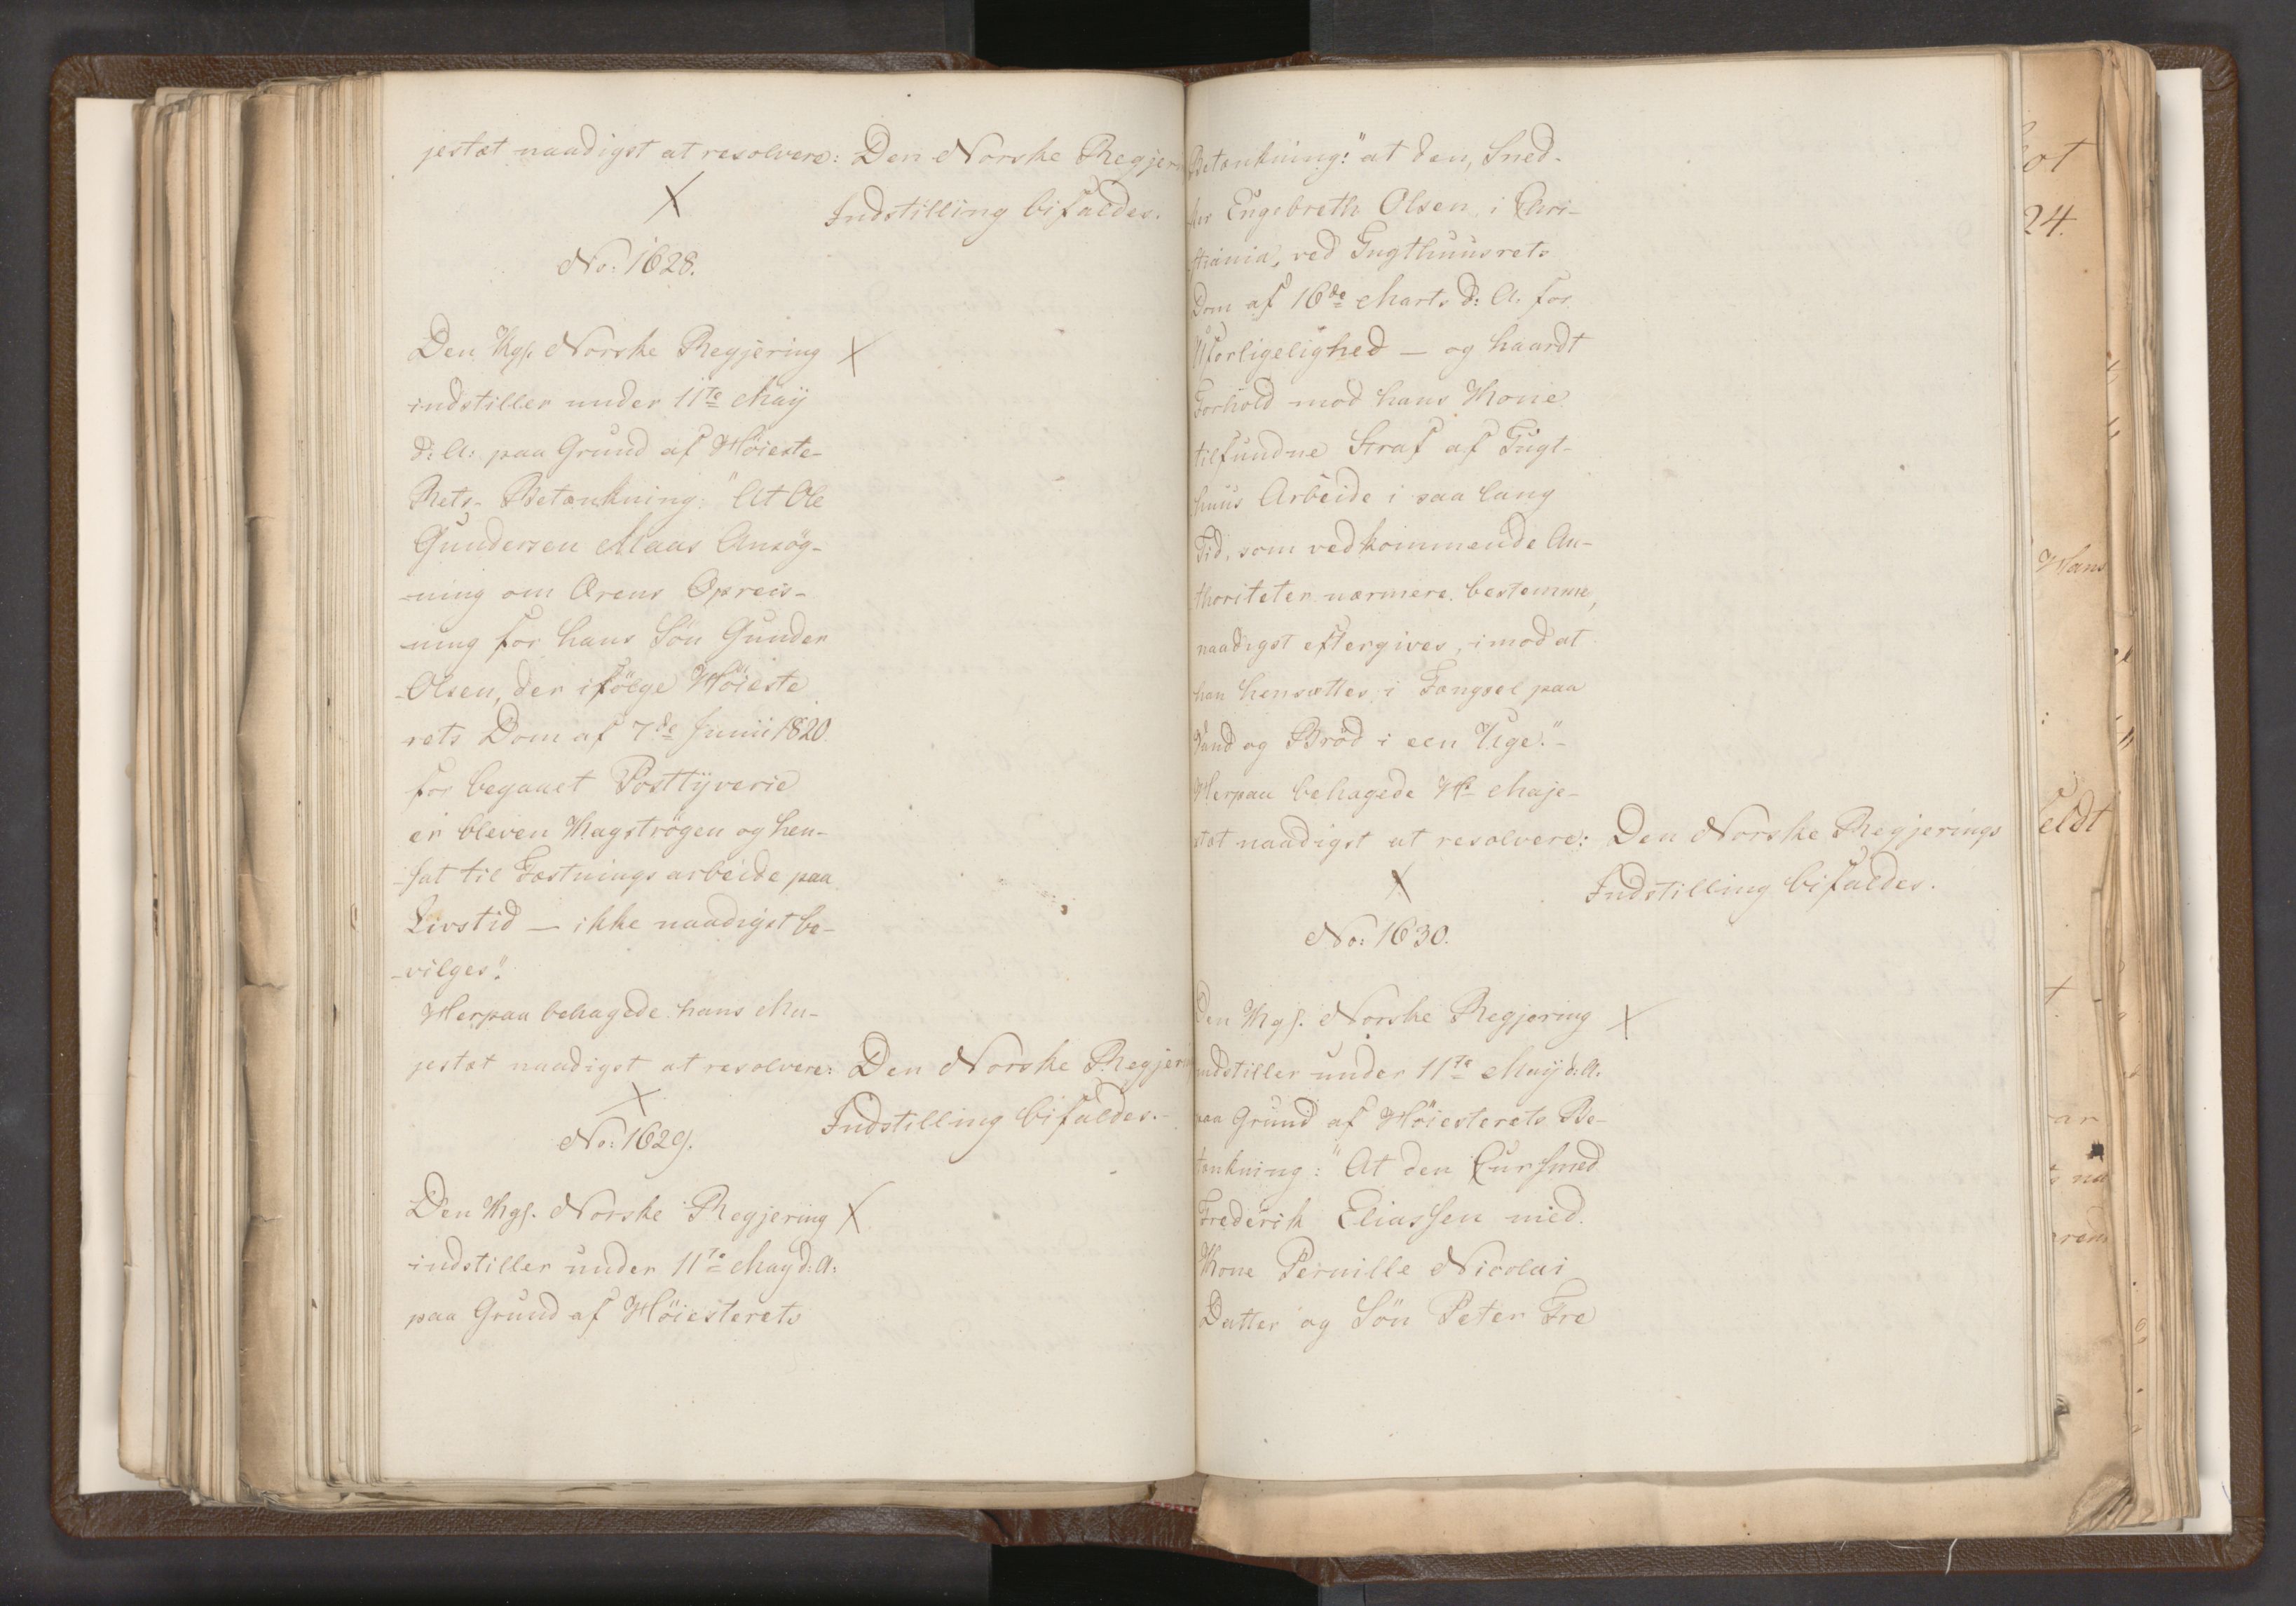 jestæt naadigst at resolvere: Den Norske Regjer
Indstilling bifaldes.
No: 1628.
Den Kgl. Norske Regjering
indstiller under 11te Maÿ
d: A: paa Grund af Höieste-
Rets- Betænkning: "At Ole
Gundersen Maas Ansög-
-ning om Ærens Opreis-
-ning for hans Sön Gunder
-Olsen, der ifölge Höieste
rets Dom af 7de Junii 1820.
for begaaet Posttÿverie
er bleven Kagströgen og hen-
-sat til Fæstningsarbeide paa
Livstid — ikke naadigst be-
-vilges".
Herpaa behagede hans Ma-
jestæt naadigst at resolvere: Den Norske Regjeri
Indstilling bifaldes.-
No: 1629.
Den Kgl. Norske Regjering
indstiller under 11te May d: A:
paa Grund af Höiesterets
Betænkning: "at den, Sned-
ker Engebreth Olsen i Chri-
stiania, ved Tugthuusrets
Dom af 16de Marts d: A. for
Uforligelighed — og haardt
Forhold mod hans Kone
tilfundne Straf af Tugt-
huus Arbeide i saa lang
Tid, som vedkommende Au-
thoriteter nærmere bestemme,
naadigst eftergives, imod at
han hensættes i Fængsel paa
Vand og Bröd i een Uge."-
Herpaa behagede Hs Maje-
stæt naadigst at resolvere: Den Norske Regjerings
Indstilling bifaldes.
No: 1630.
Den Kgl. Norske Regjering
indstiller under 11te Maÿ d: A:
paa Grund af Höiesterets Be-
tænkning: "At den Cursmed
Frederik Eliassen med
Kone Pernille Nicolai
Datter og Sön Peter Fre
24.
Hans
eldt